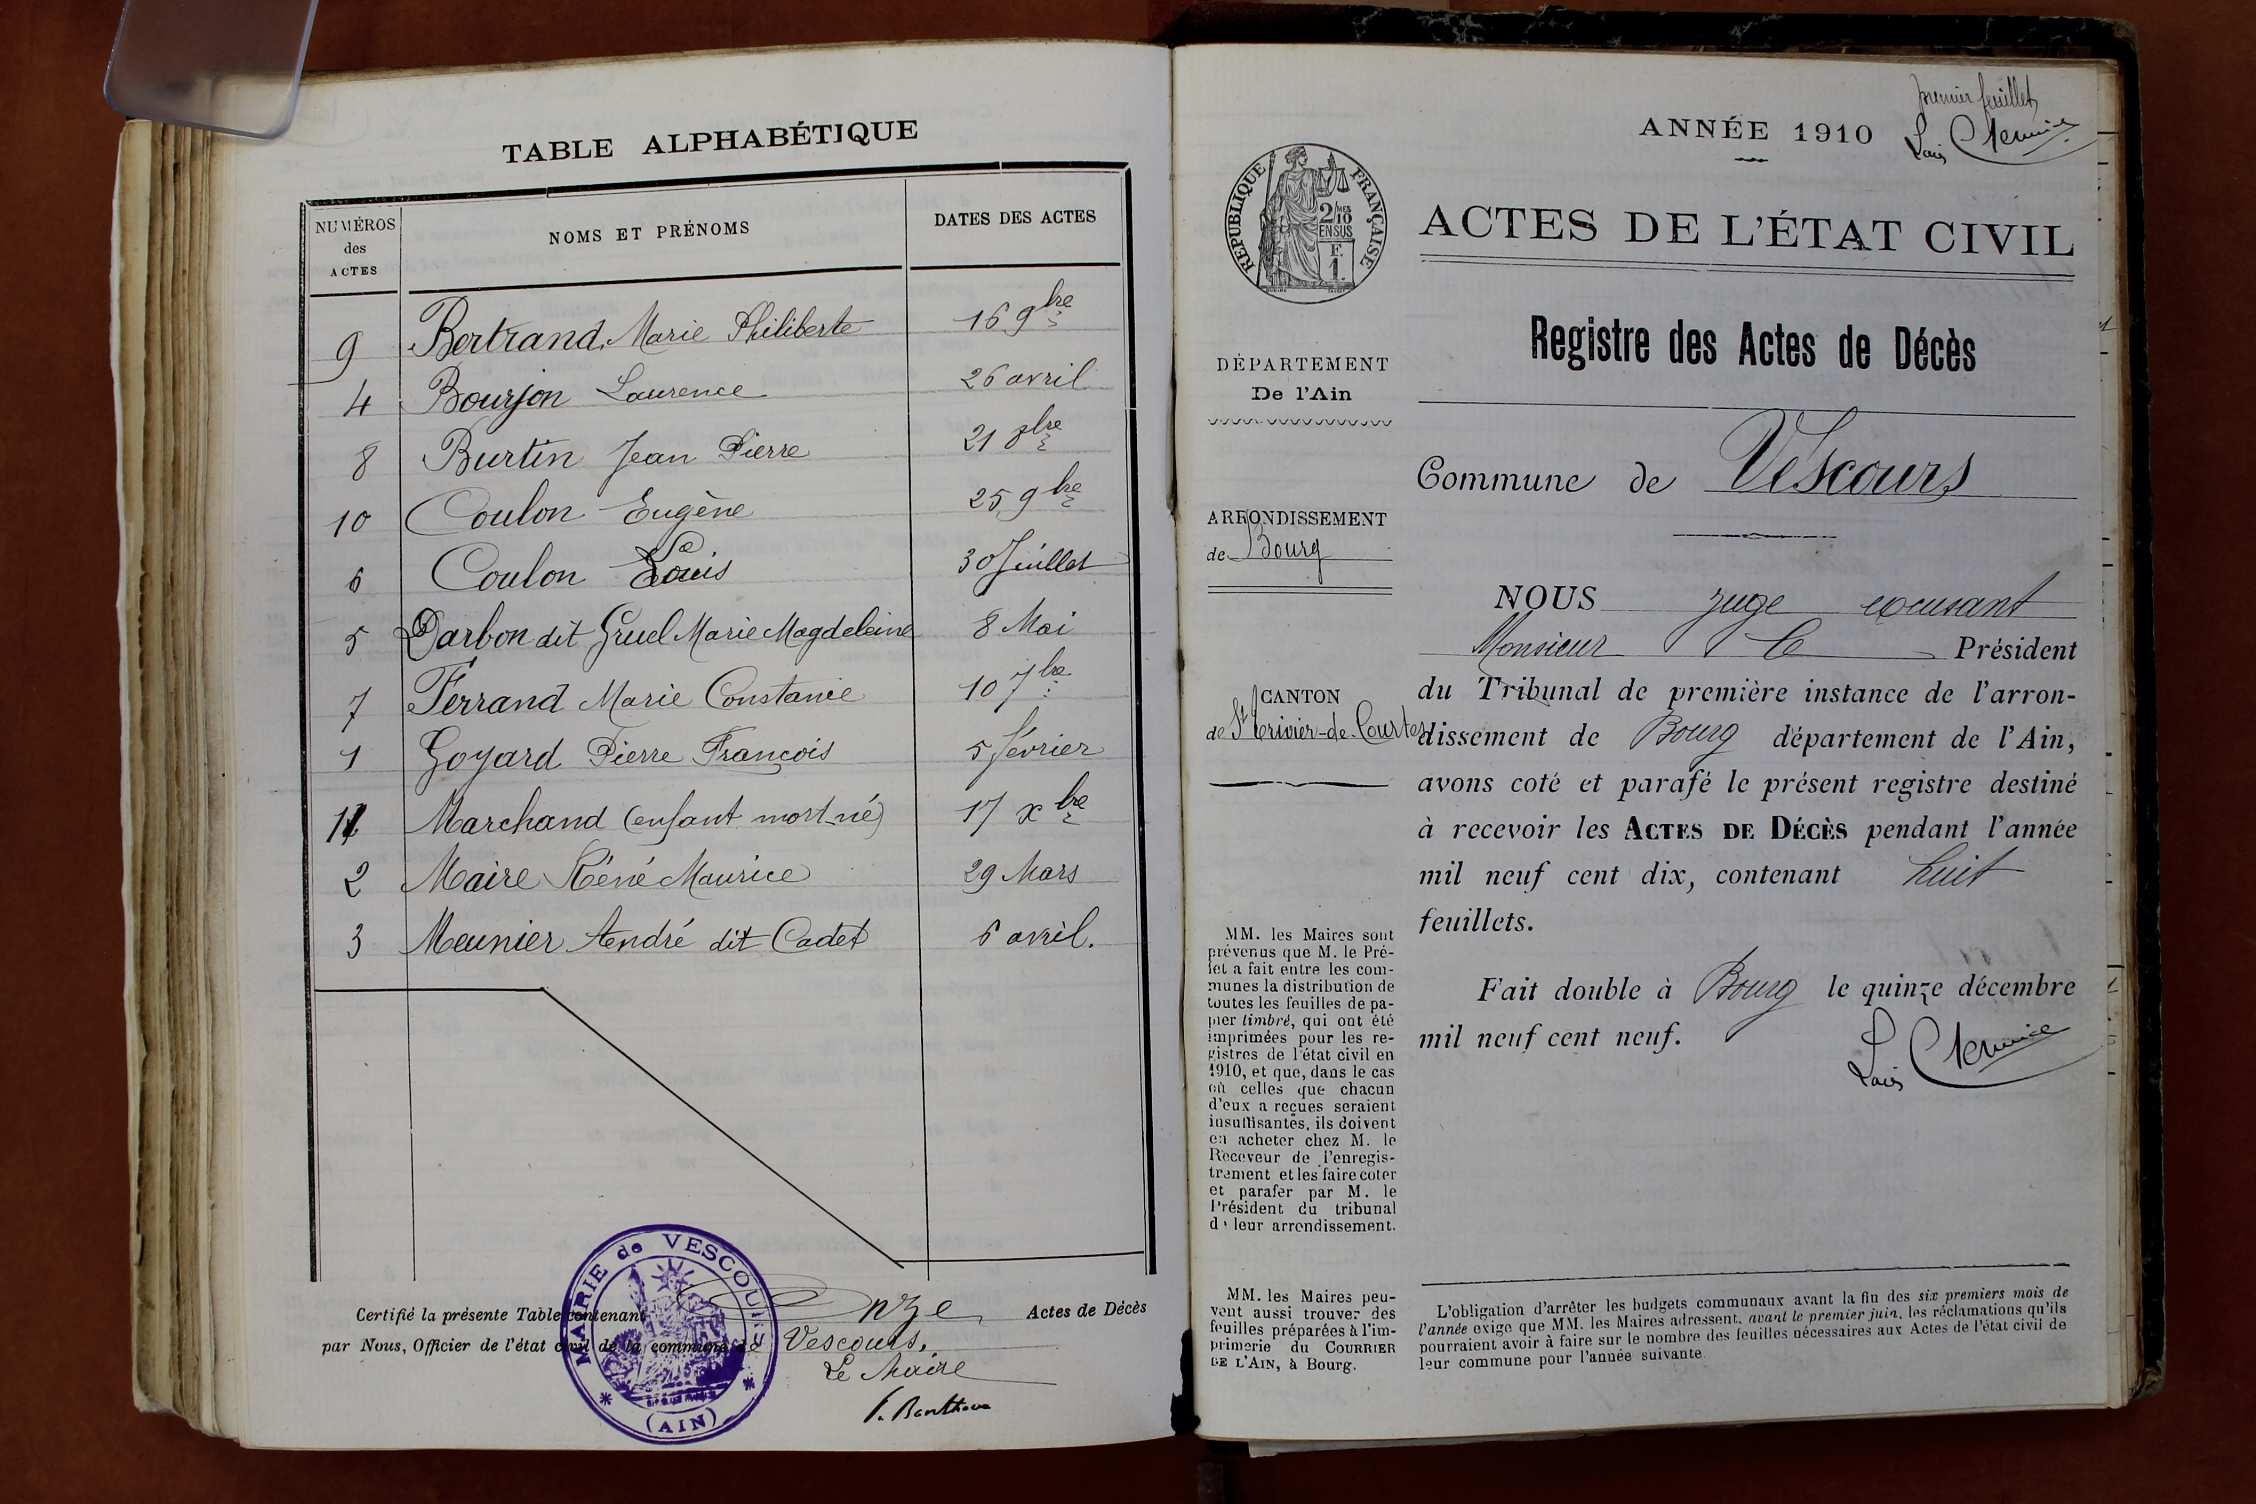 TABLE ALPHABÉTIQUE
NUMÉROS des ACTES
NOMS ET PRÉNOMS
DATES DES ACTES
9 Bertrand Marie Philiberte 16 9bre
4 Bourjon Laurence 26 avril
8 Burtin Jean Pierre 21 8bre
10 Coulon Eugène 25 9bre
6 Coulon Louis 30 Juillet
5 Darbon dit Gruel Marie Magdeleine 8 Mai
7 Ferrand Marie Constance 10 7bre
1 Goyard Pierre François 5 février
11 Marchand (enfant mort-né) 17 xbre
2 Maire Réné Maurice 29 Mars
3 Meunier André dit Cadet 6 avril.
Certifié la présente Table contenant onze Actes de Décès
par Nous, Officier de l'état civil de la commune de Vescours,
Le Maire
MAIRIE de VESCOURS
(AIN)
premier feuillet
ANNÉE 1910
RÉPUBLIQUE FRANÇAISE
2/10 MES
EN SUS
F.
1.
ACTES DE L'ÉTAT CIVIL
Registre des Actes de Décès
DÉPARTEMENT
De l'Ain
Commune de Vescours
ARRONDISSEMENT
de Bourg
CANTON
de St Trivier-de-Courtes
NOUS juge excusant
Monsieur le Président
du Tribunal de première instance de l'arron-
dissement de Bourg département de l'Ain,
avons coté et parafé le présent registre destiné
à recevoir les ACTES DE DÉCÈS pendant l'année
mil neuf cent dix, contenant huit
feuillets.
Fait double à Bourg le quinze décembre
mil neuf cent neuf.
MM. les Maires sont
prévenus que M. le Pré-
fet a fait entre les com-
munes la distribution de
toutes les feuilles de pa-
pier timbré, qui ont été
imprimées pour les re-
gistres de l'état civil en
1910, et que, dans le cas
où celles que chacun
d'eux a reçues seraient
insuffisantes, ils doivent
en acheter chez M. le
Receveur de l'enregis-
trement et les faire coter
et parafer par M. le
Président du tribunal
de leur arrondissement.
MM. les Maires peu-
vent aussi trouver des
feuilles préparées à l'im-
primerie du COURRIER
DE L'AIN, à Bourg.
L'obligation d'arrêter les budgets communaux avant la fin des six premiers mois de
l'année exige que MM. les Maires adressent, avant le premier juin, les réclamations qu'ils
pourraient avoir à faire sur le nombre des feuilles nécessaires aux Actes de l'état civil de
leur commune pour l'année suivante.